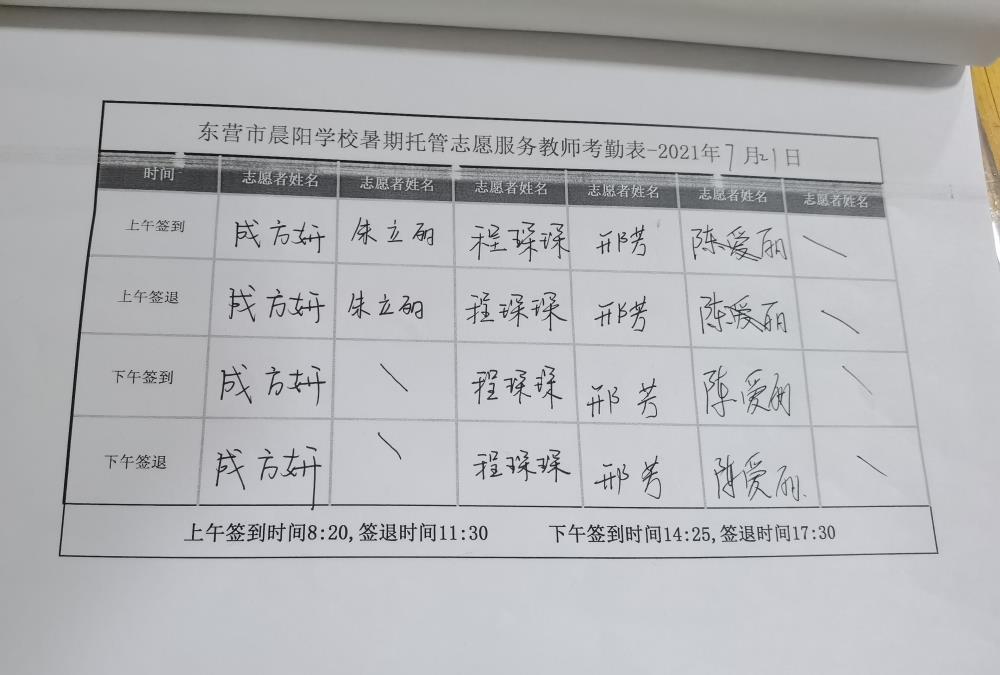 东营市晨阳学校暑期托管志愿服务教师考勤表-2021年7月21日
时间 志愿者姓名 志愿者姓名 志愿者姓名 志愿者姓名 志愿者姓名 志愿者姓名
上午签到 成方妍 朱立丽 程琛琛 邢芳 陈爱丽 \
上午签退 成方妍 朱立丽 程琛琛 邢芳 陈爱丽 \
下午签到 成方妍 \ 程琛琛 邢芳 陈爱丽 \
下午签退 成方妍 \ 程琛琛 邢芳 陈爱丽 \
上午签到时间8:20,签退时间11:30 下午签到时间14:25,签退时间17:30